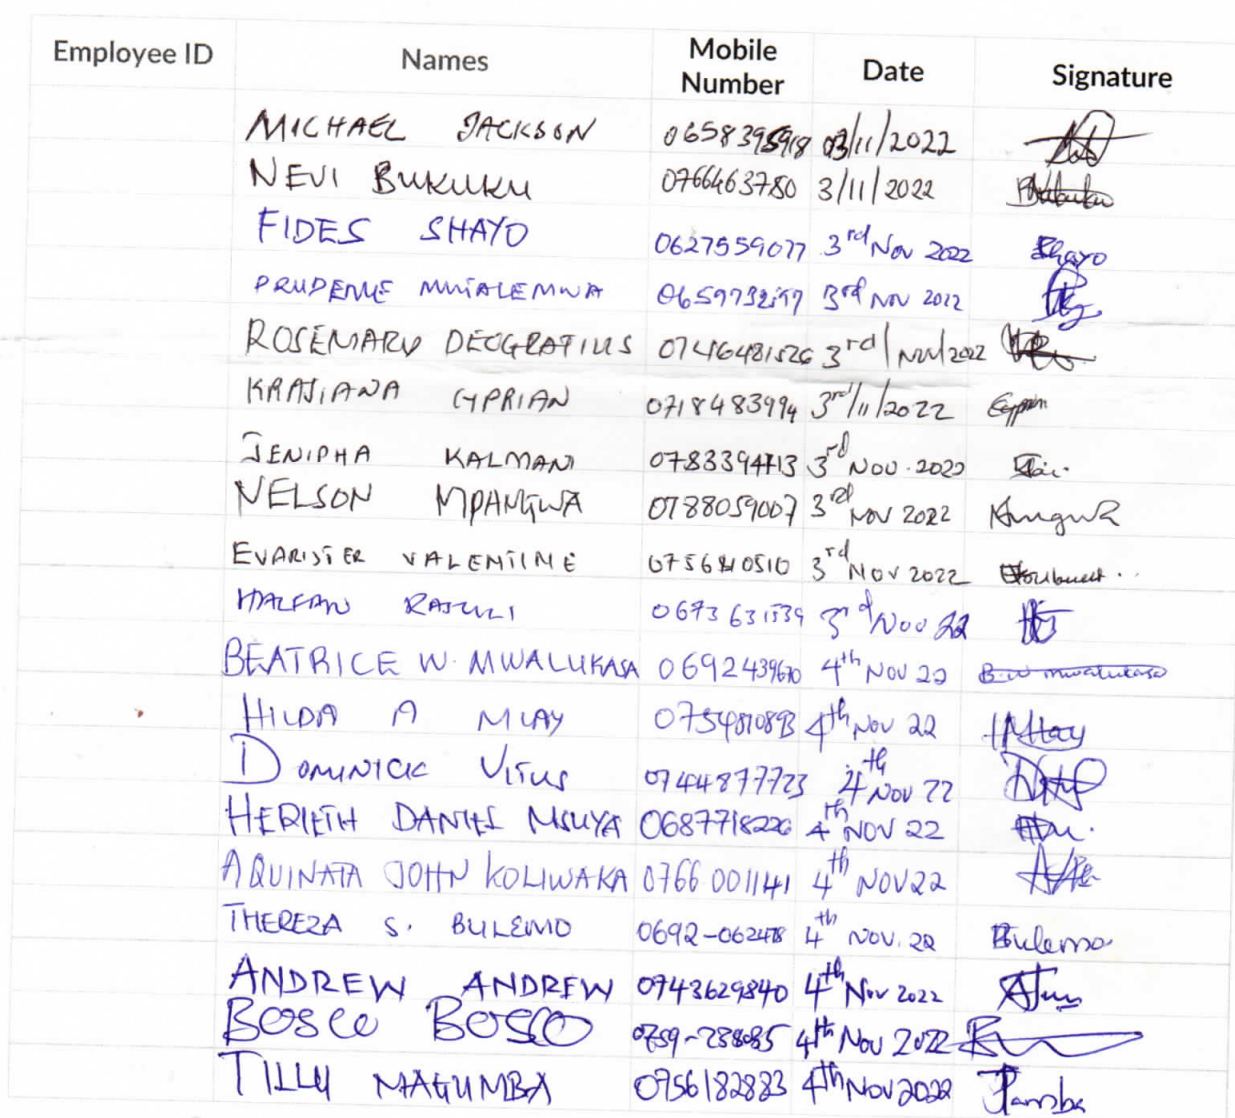 Employee ID Names Mobile Number Date Signature
MICHAEL JACKSON 0658395918 03/11/2022
NEVI BUKUKU 0766463780 3/11/2022
FIDES SHAYO 0627559077 3rd Nov 2022 Shayo
3rd Nov 2022
ROSEMARY DEOGRATIUS 3rd/Nov/2022
KRASIANA CYPRIAN 0718483994 3rd/11/2022
JENIPHA KALMANI 3rd Nov. 2022
NELSON MPANGWA 0788059007 3rd Nov 2022
EVARISTER VALENTINE 3rd Nov 2022
HALFAN RAJULI 0673 631539 3rd Nov 22
BEATRICE W. MWALUKASA 0692439670 4th Nov 22 B.W Mwalukasa
HILDA A MLAY 0754810893 4th Nov 22
DOMINICK VITUS 0744877723 4th Nov 22
HERIETH DANIEL MSUYA 0687718226 4th NOV 22
AQUINATA JOHN KOLIWAKA 0766 001141 4th NOV 22
THEREZA S. BULEMO 0692-062478 4th NOV. 22 Bulemo
ANDREW ANDREW 0743629840 4th Nov 2022
BOSCO BOSCO 4th Nov 2022
TILLY MAGUMBA 0756182883 4th Nov 2022